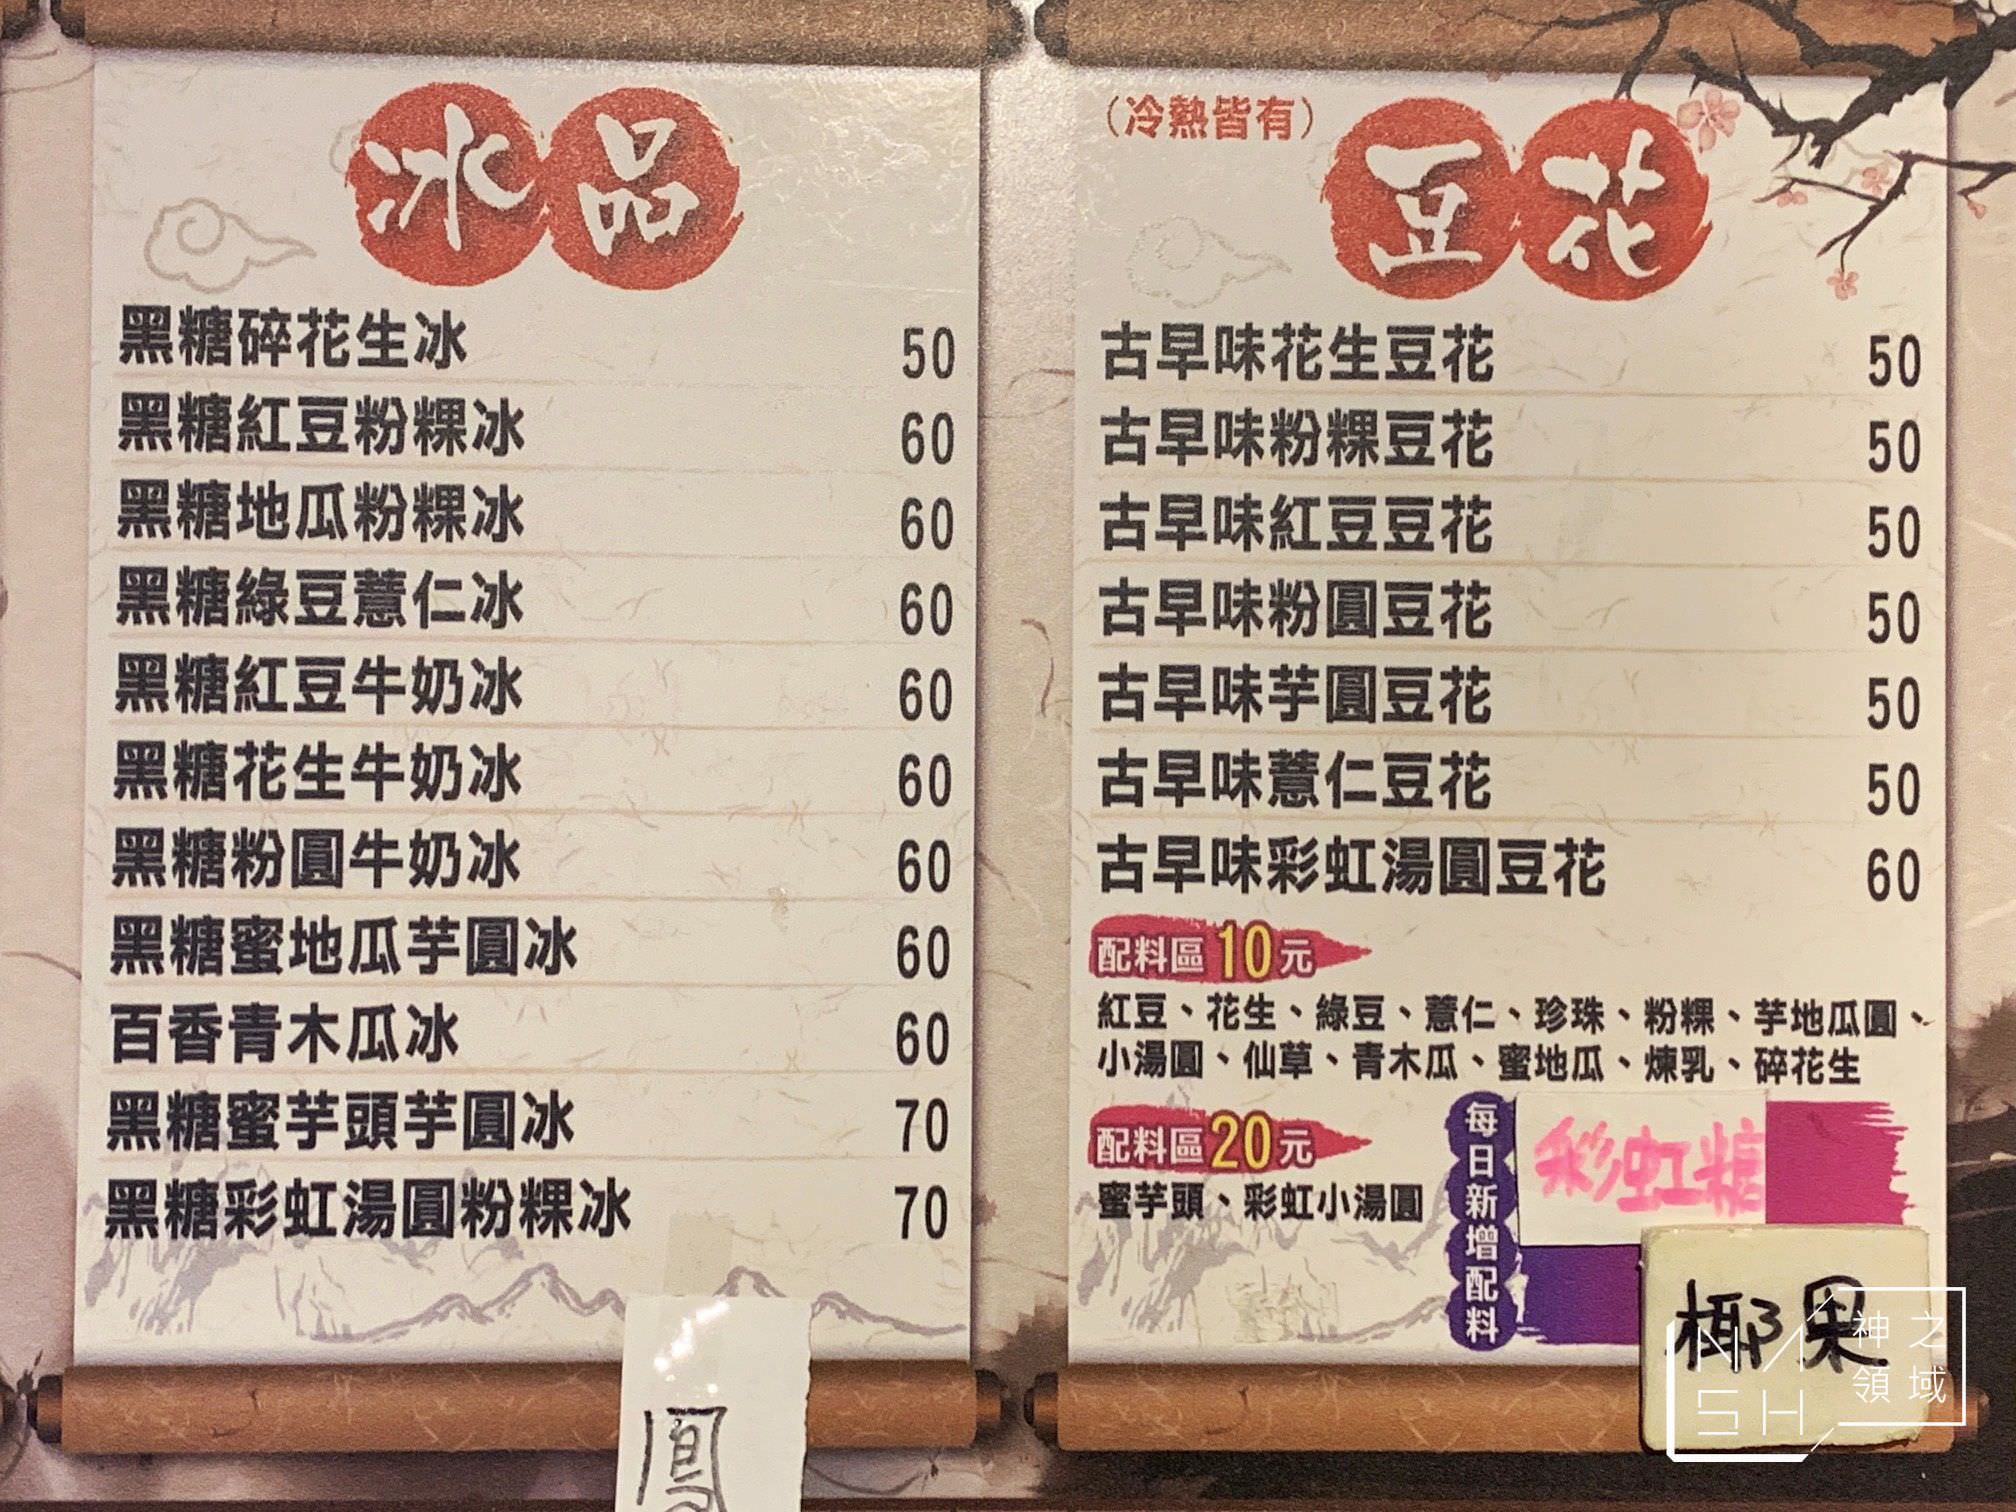 冰品
黑糖碎花生冰 50
黑糖紅豆粉粿冰 60
黑糖地瓜粉粿冰 60
黑糖綠豆薏仁冰 60
黑糖紅豆牛奶冰 60
黑糖花生牛奶冰 60
黑糖粉圓牛奶冰 60
黑糖蜜地瓜芋圓冰 60
百香青木瓜冰 60
黑糖蜜芋頭芋圓冰 70
黑糖彩虹湯圓粉粿冰 70
(冷熱皆有)
豆花
古早味花生豆花 50
古早味粉粿豆花 50
古早味紅豆豆花 50
古早味粉圓豆花 50
古早味芋圓豆花 50
古早味薏仁豆花 50
古早味彩虹湯圓豆花 60
配料區10元
紅豆、花生、綠豆、薏仁、珍珠、粉粿、芋地瓜圓、
小湯圓、仙草、青木瓜、蜜地瓜、煉乳、碎花生
配料區20元
蜜芋頭、彩虹小湯圓
每日新增配料
彩虹糖
椰果
神之
領域